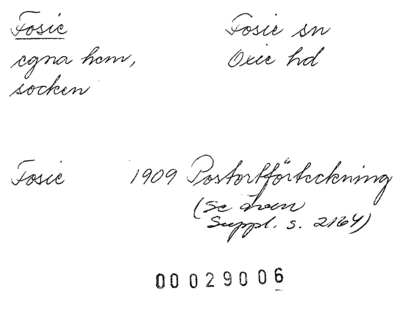 Fosie Fosie sn
egna hem, Oxie hd
socken
Fosie 1909 Postortförteckning
(Se även
Suppl. s. 2164)
00029006